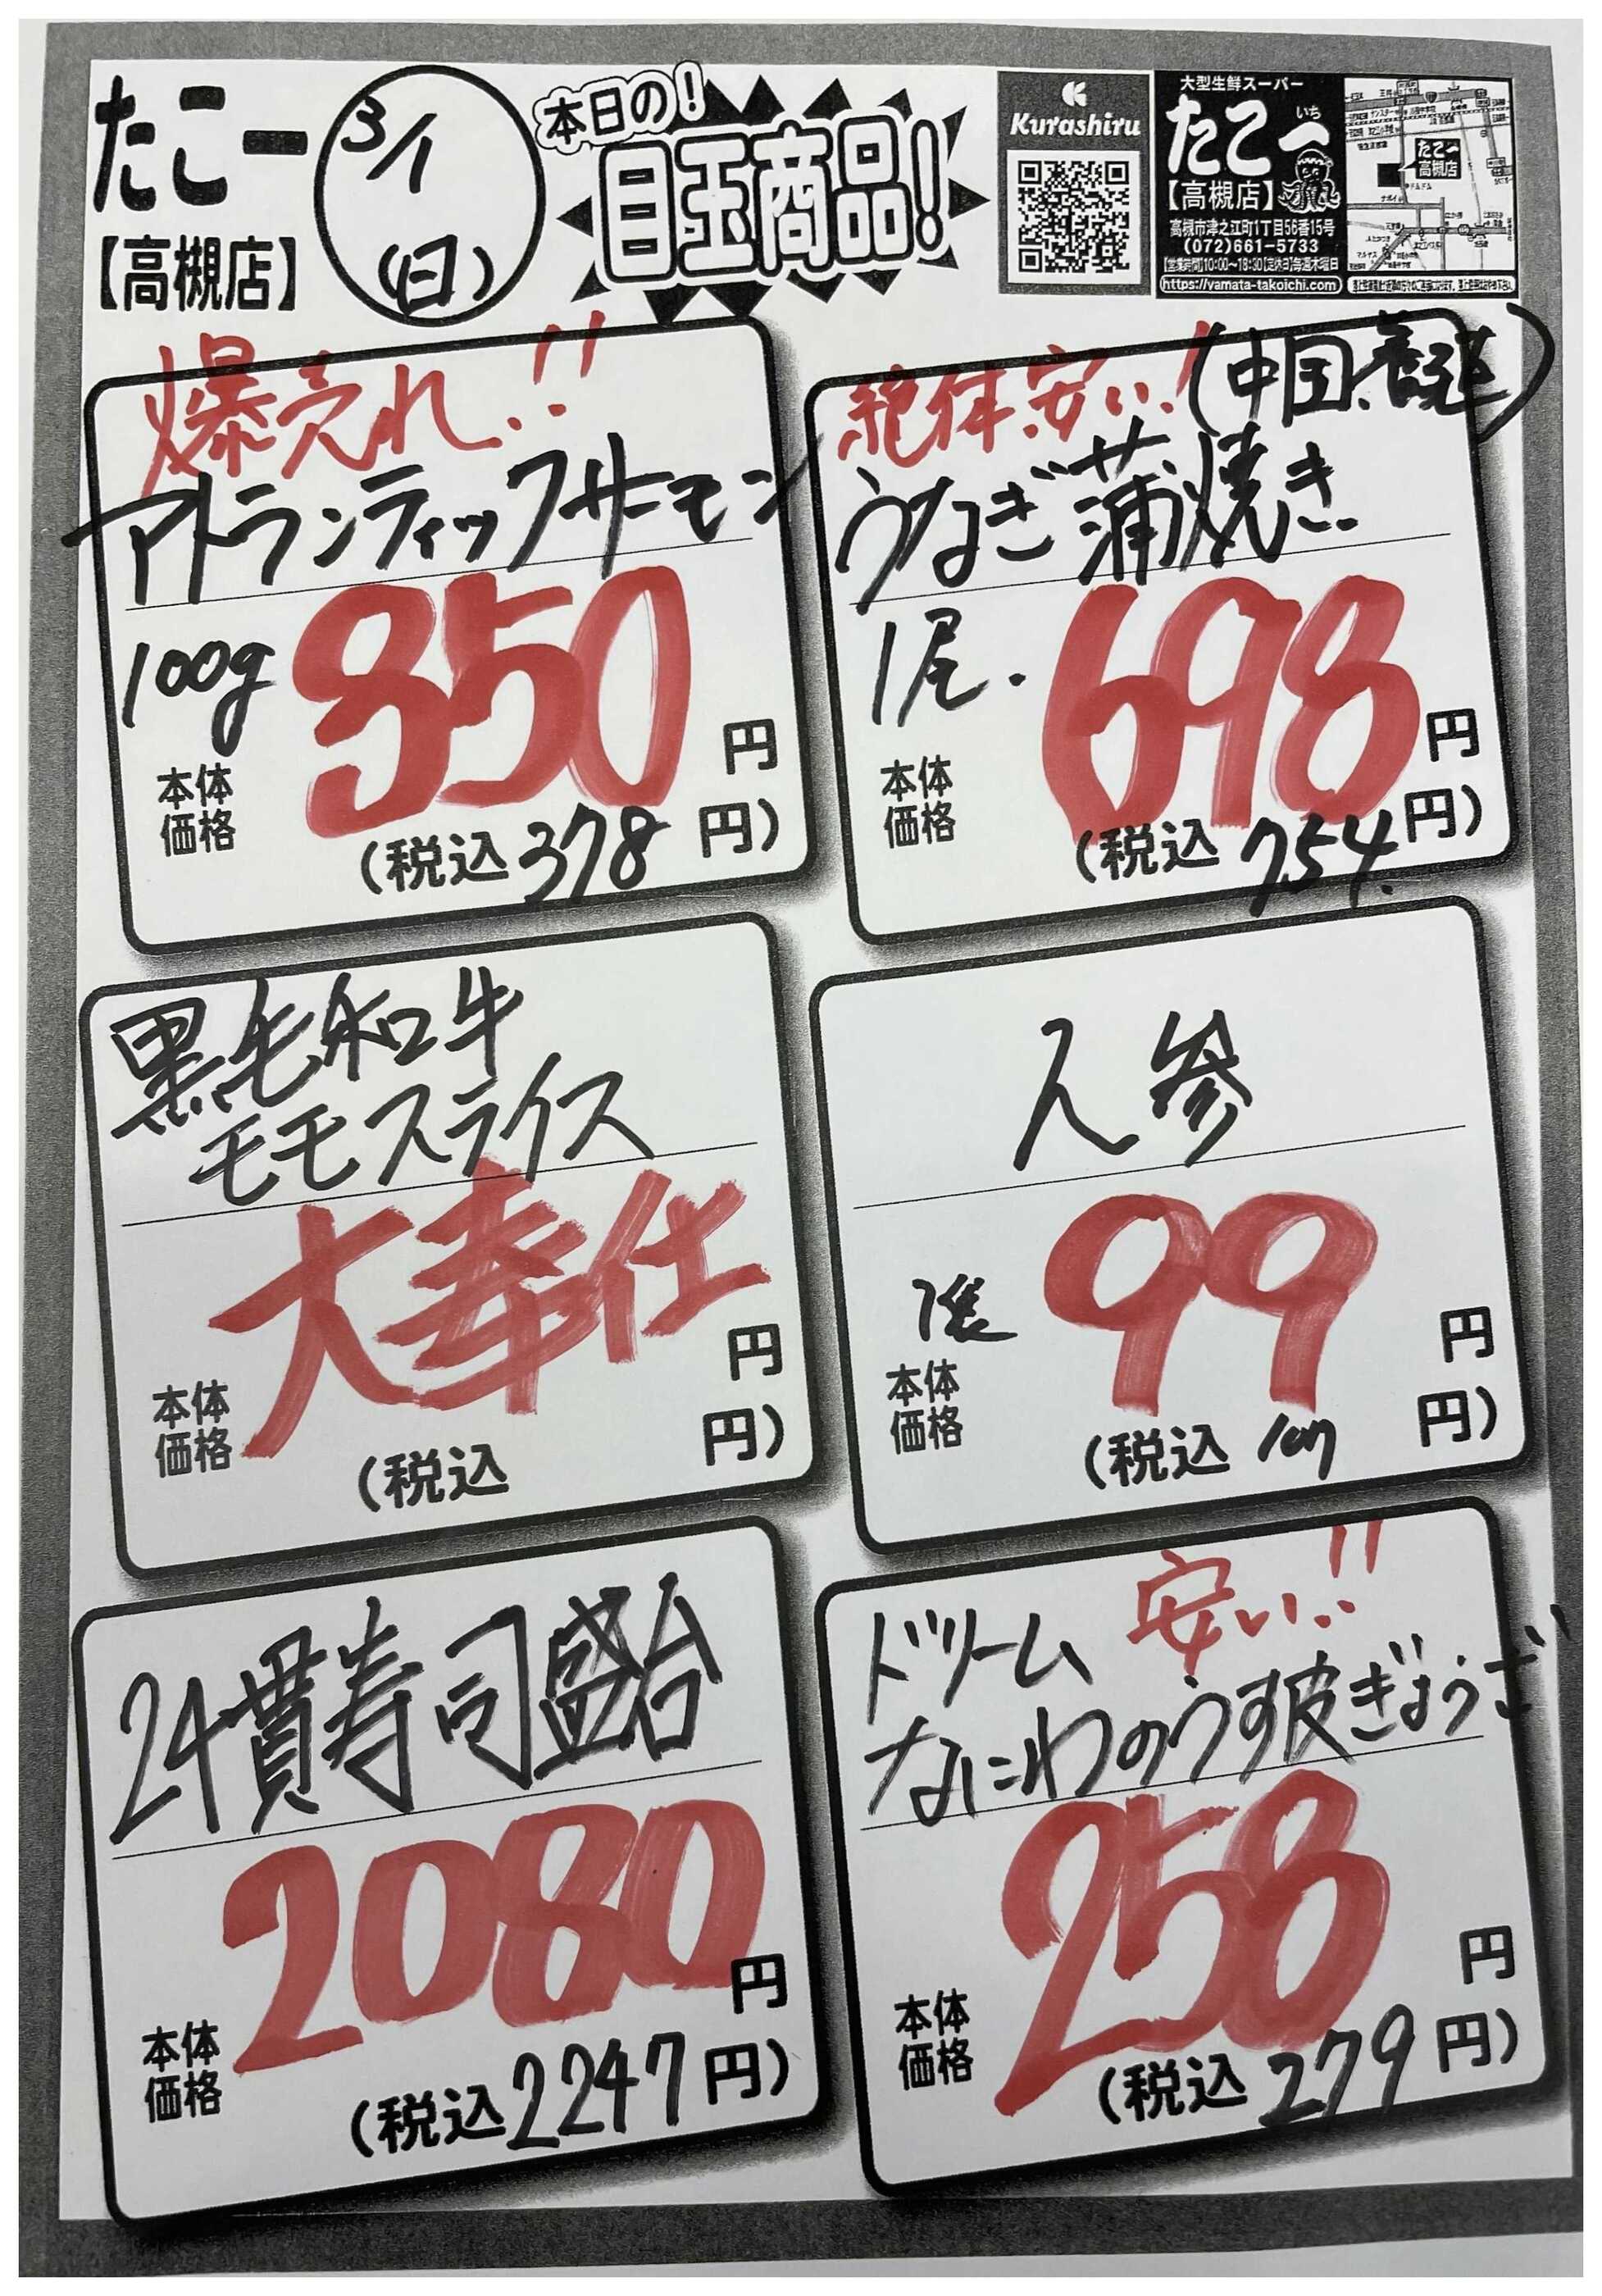 たこ一
【高槻店】
3/1
(日)
本日の!
目玉商品!
Kurashiru
大型生鮮スーパー
いち
たこ一
【高槻店】
高槻市津之江町1丁目56番15号
(072)661-5733
【営業時間】10:00~18:30【定休日】毎週木曜日
https://yamata-takoichi.com
たこ一
高槻店
爆売れ!!
アトランティックサーモン
100g
350
円
本体
価格
(税込 378 円)
絶体安い!
(中国、養殖)
うなぎ蒲焼き
1尾.
698
円
本体
価格
(税込 754. 円)
黒毛和牛
モモスライス
大奉仕
円
本体
価格
(税込 円)
人参
1袋
99
円
本体
価格
(税込 107 円)
24貫寿司盛合
2080
円
本体
価格
(税込 2247 円)
安い!!
ドリーム
なにわのうす皮ぎょうざ
258
円
本体
価格
(税込 279 円)